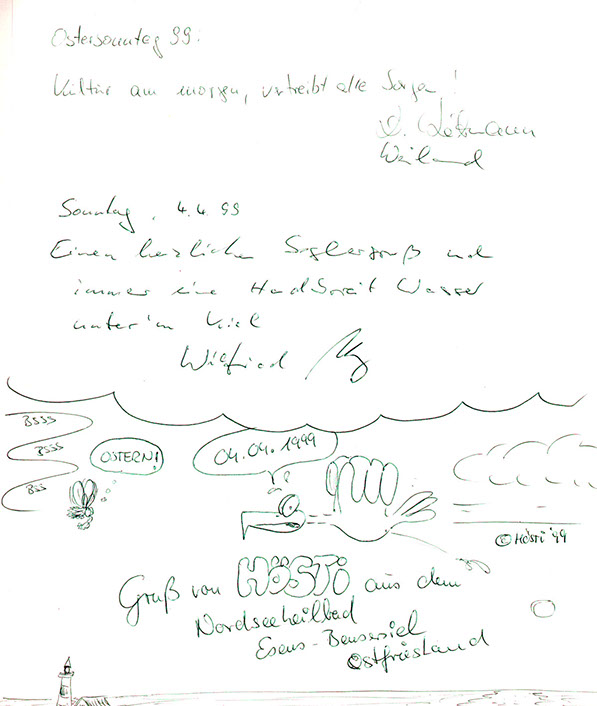 Ostersonntag 99:
Kultur am morgen, vertreibt alle Sorgen!
Weiland
Sonntag, 4.4.99
Einen herzlichen Seglergruß und
immer eine Handbreit Wasser
unter'm Kiel
Wilfried
BSSS
BSSS
BSS
OSTERN!
04.04.1999
© Hösti '99
Gruß von HÖSTi aus dem
Nordseeheilbad
Esens-Bensersiel
Ostfriesland